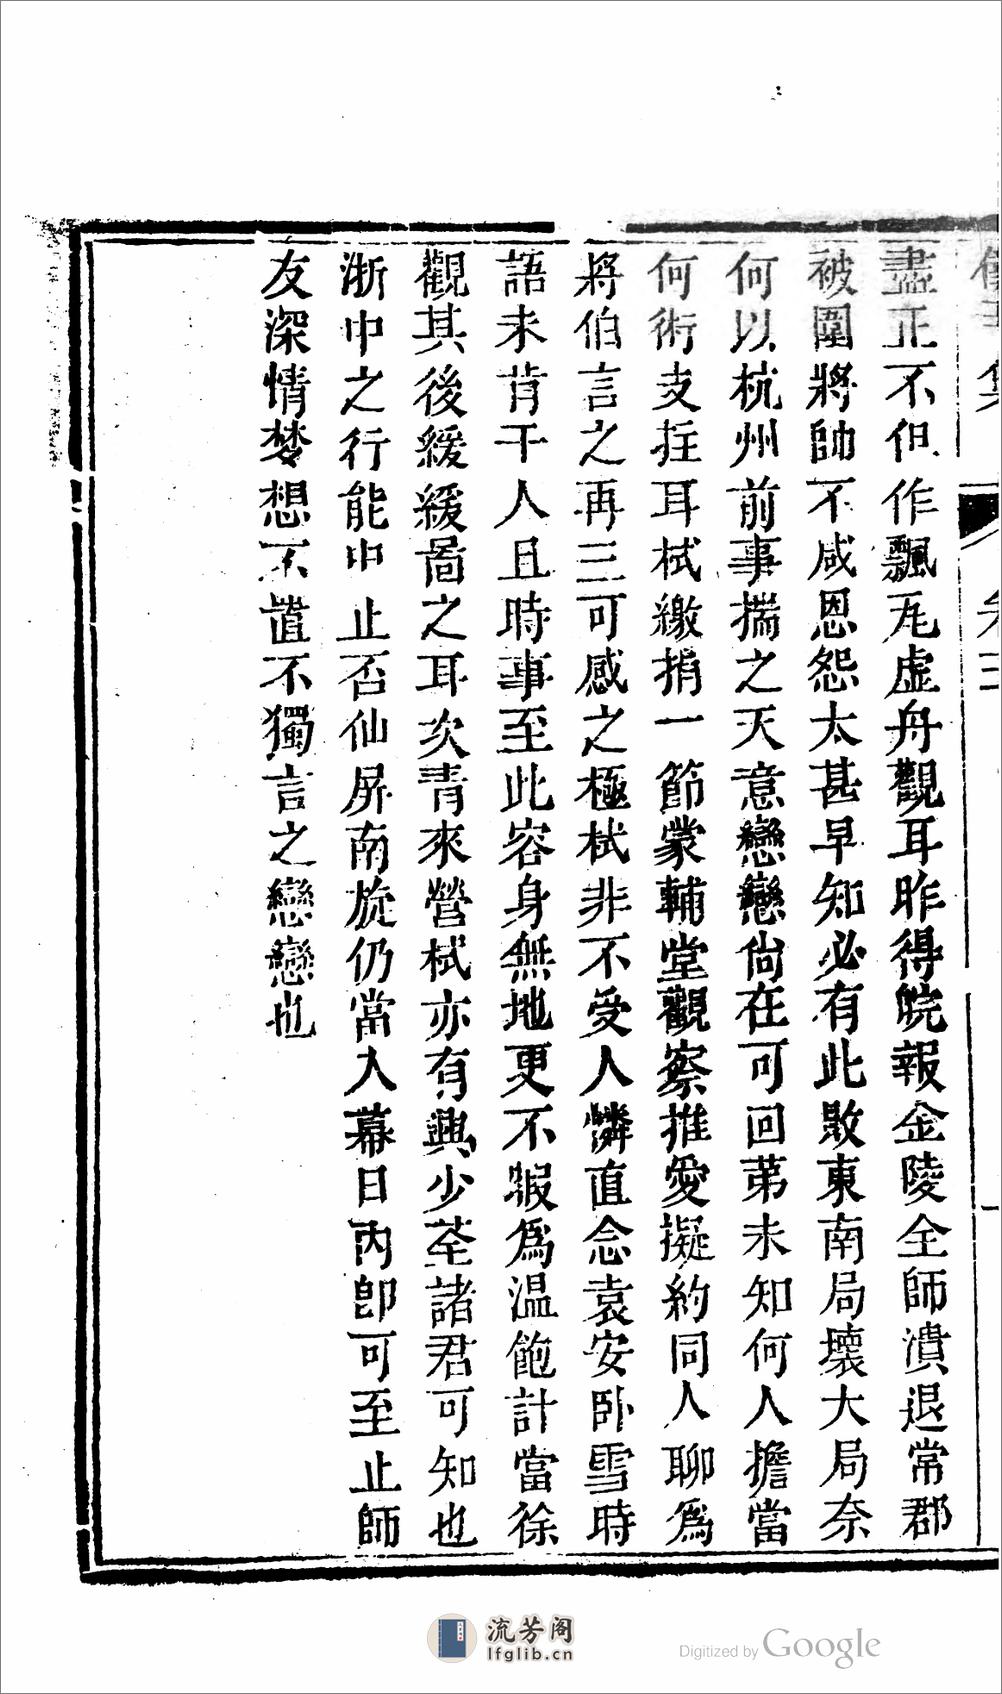 盡正不但作飄瓦虛舟觀耳昨得皖報金陵全師潰退常郡
被圍將帥不咸恩怨太甚早知必有此敗東南局壞大局奈
何以杭州前事揣之天意戀戀尙在可回苐未知何人擔當
何術支拄耳栻繳捐一節蒙輔堂觀察推愛擬約同人聊爲
將伯言之再三可感之極栻非不受人憐直念袁安卧雪時
語未肯干人且時事至此容身無地更不暇爲温飽計當徐
觀其後緩緩啚之耳次青來營栻亦有興少荃諸君可知也
浙中之行能中止否仙屏南旋仍當入幕日內卽可至止師
友深情梦想不置不獨言之戀戀也
流芳阁
lfglib.cn
Digitized by Google